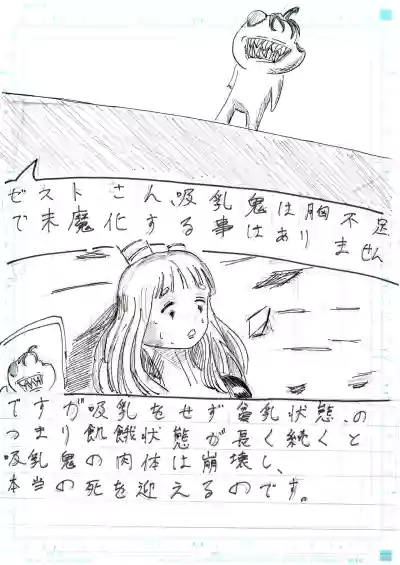 ゼストさん、吸乳鬼は胸不足
で末魔化する事はありません
ですが吸乳をせず貧乳状態、の
つまり飢餓状態が長く続くと
吸乳鬼の肉体は崩壊し、
本当の死を迎えるのです。